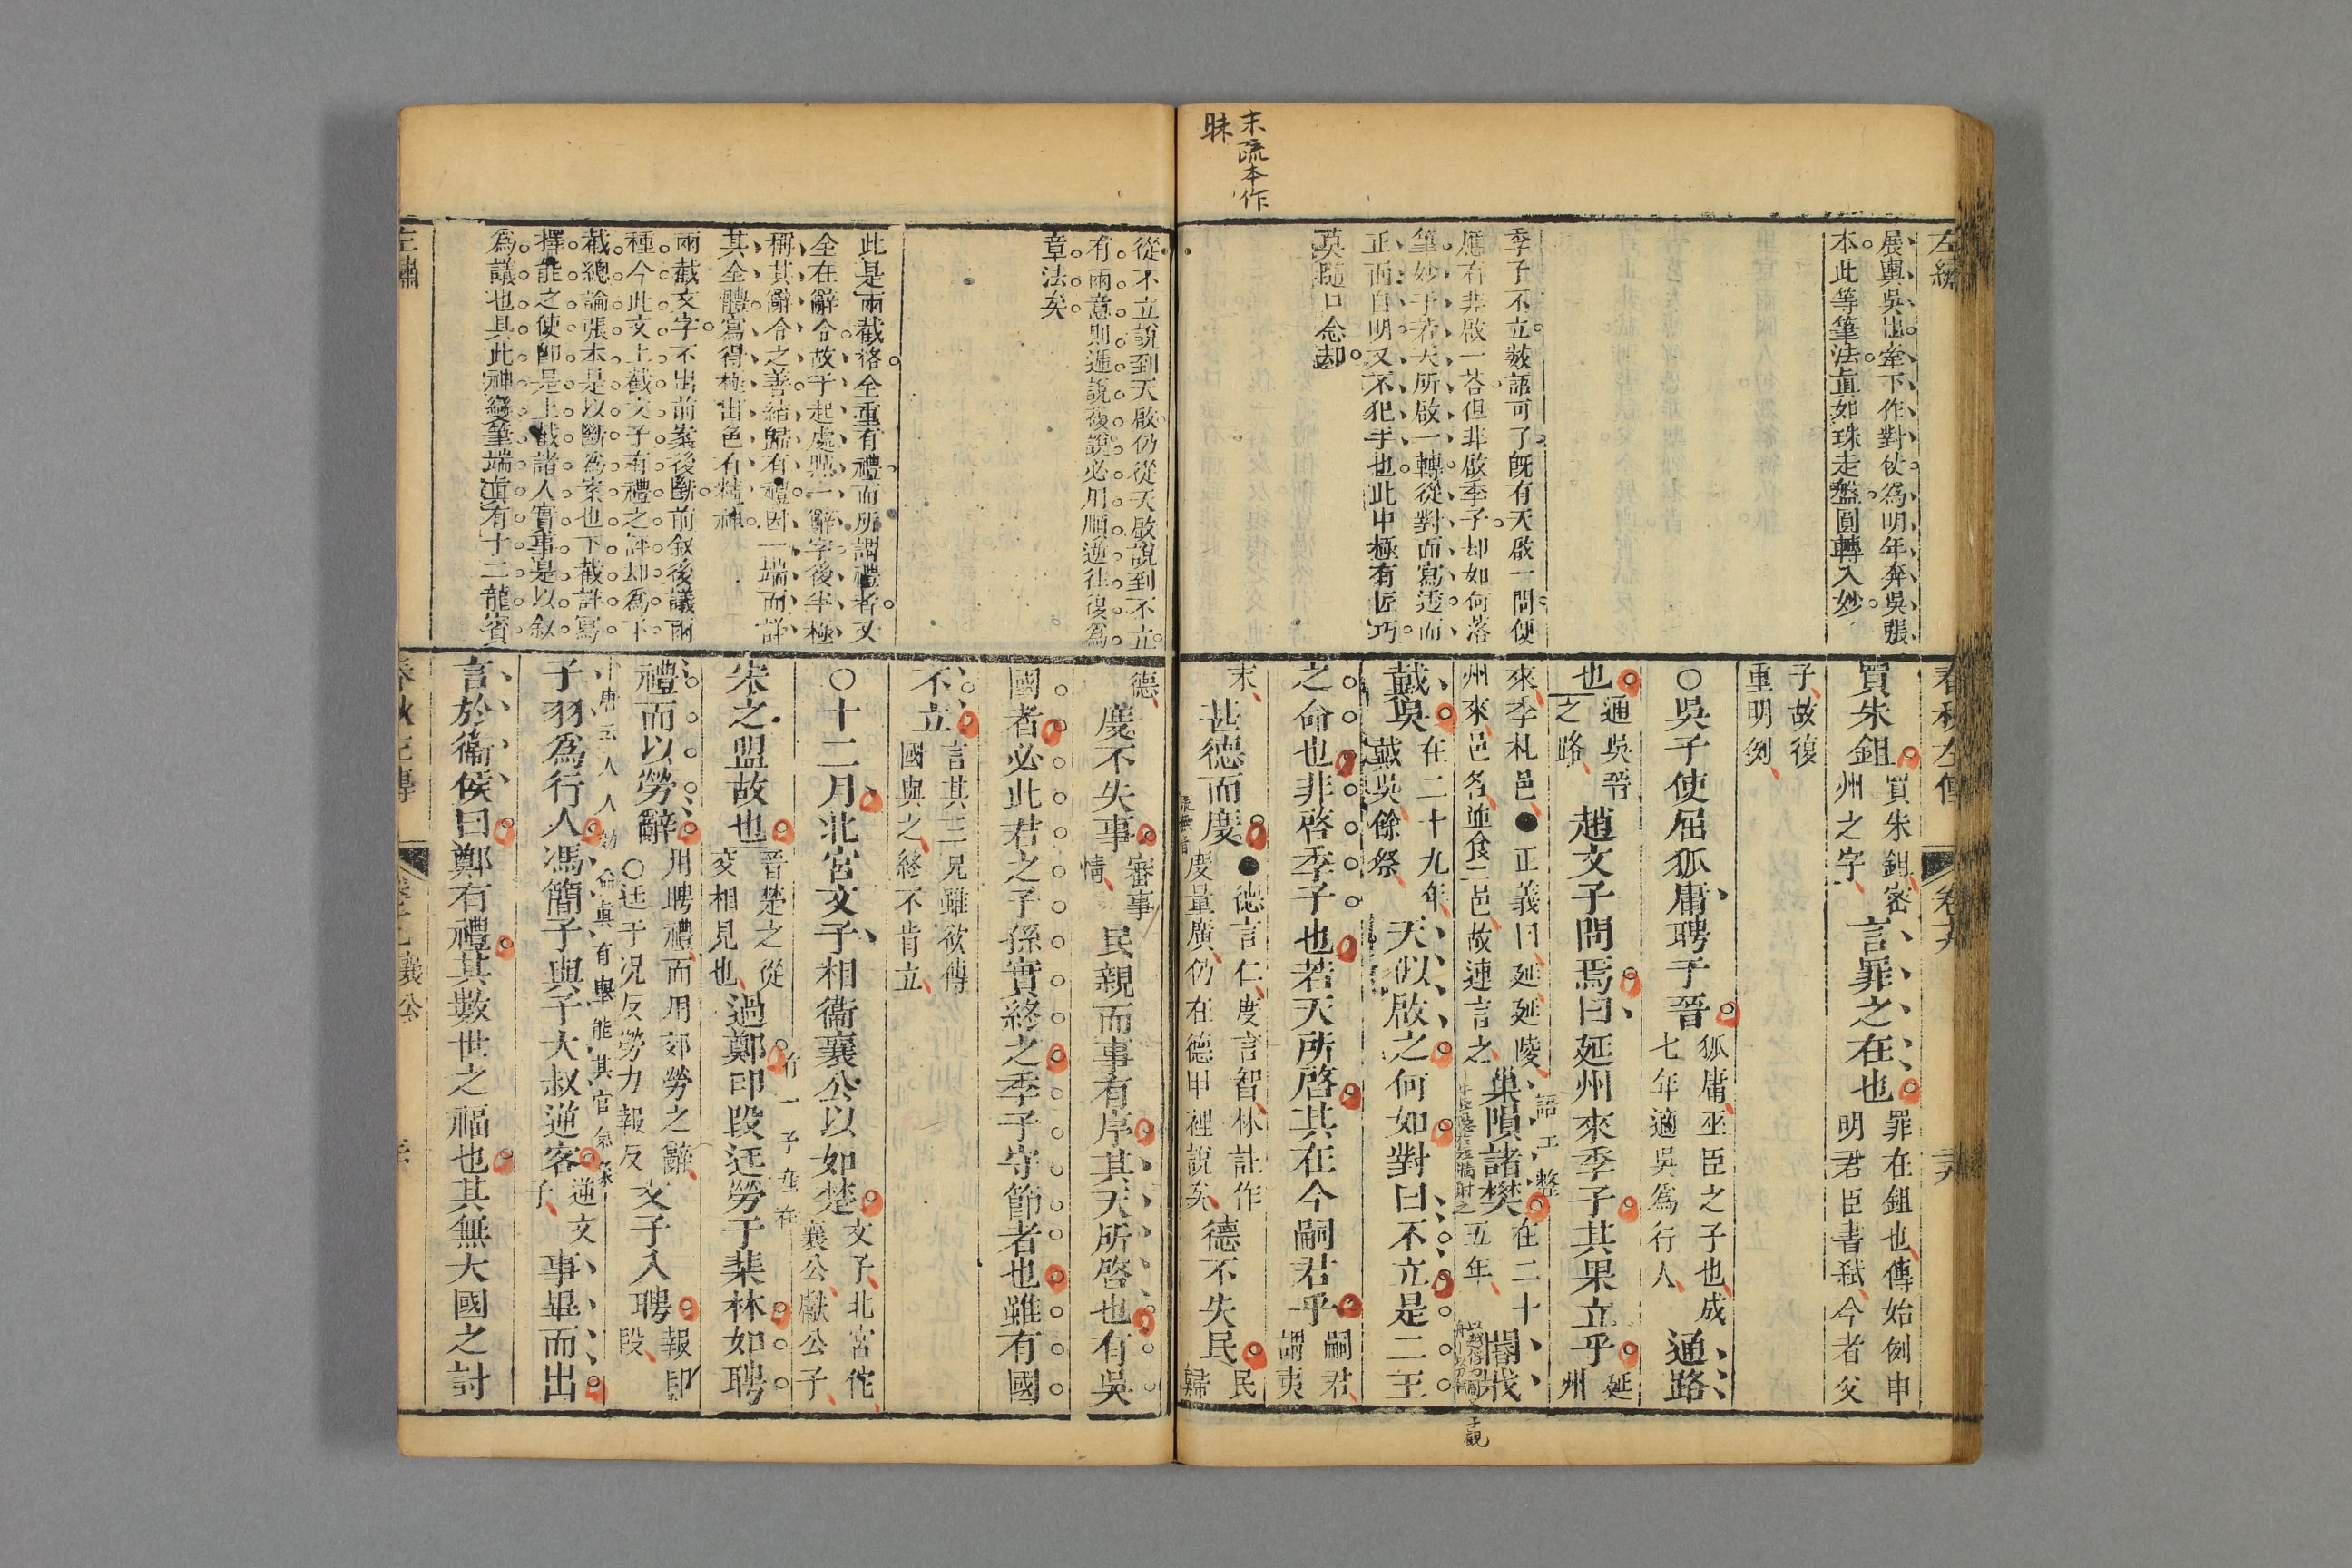 末疏本作
昧
左繡
展輿吳出牽下作對伏爲明年奔吳張
本此等筆法眞如珠走盤圓轉入妙
季子不立數語可了旣有天啟一問便
應有非啟一答但非啟季子却如何落
筆妙于若天所啟一轉從對面寫透而
正面自明又不犯手也此中極有匠巧
莫隨口念却
春秋左傳
卷十九
買朱鉏
買朱鉏密
州之字
言罪之在也
罪在鉏也傳始例申
明君臣書弒今者父
子故復
重明例
○吳子使屈狐庸聘于晉
狐庸巫臣之子也成
七年適吳爲行人
通路
也
通吳晉
之路
趙文子問焉曰延州來季子其果立乎
延
州
來季札邑●正義曰延延陵
州來邑名並食二邑故連言之
巢隕諸樊
在二十
五年
閽戕
語工整
戴吳
在二十九年
戴吳餘祭
天似啟之何如對曰不立是二王
之命也非啓季子也若天所啓其在今嗣君乎
嗣君
謂夷
末
甚德而度
●德言仁度言智林註作
度量廣仍在德甲裡說矣
德不失民
民
歸
從不立說到天啟仍從天啟說到不立
有兩意則遞說後說必用順逆往復爲
章法矣
此是兩截格全重有禮而所謂禮者又
全在辭令故于起處點一辭字後半極
稱其辭令之善結歸有禮因一端而詳
其全體寫得極出色有精神
兩截文字不出前案後斷前叙後議兩
種今此文上截文子有禮之評却爲下
截總論張本是以斷爲案也下截詳寫
擇能之使卽是上截諸人實事是以叙
爲議也其此神變筆端眞有十二龍賓
左繡
德
度不失事
審事
情
民親而事有序其天所啓也有吳
國者必此君之子孫實終之季子守節者也雖有國
不立
言其三兄雖欲傳
國與之終不肯立
○十二月北宮文子相衞襄公以如楚
文子北宮佗
襄公獻公子
宋之盟故也
晉楚之從
交相見也
過鄭印段迋勞于棐林如聘
禮而以勞辭
用聘禮而用郊勞之辭
○迋于况反勞力報反
文子入聘
報印
段
子羽爲行人馮簡子與子大叔逆客
逆文
子
事畢而出
言於衞侯曰鄭有禮其數世之福也其無大國之討
春秋左傳
襄公